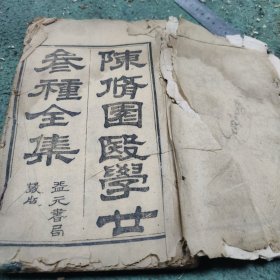 陳脩園毉學廿
叁種全集
益元書局
藏版